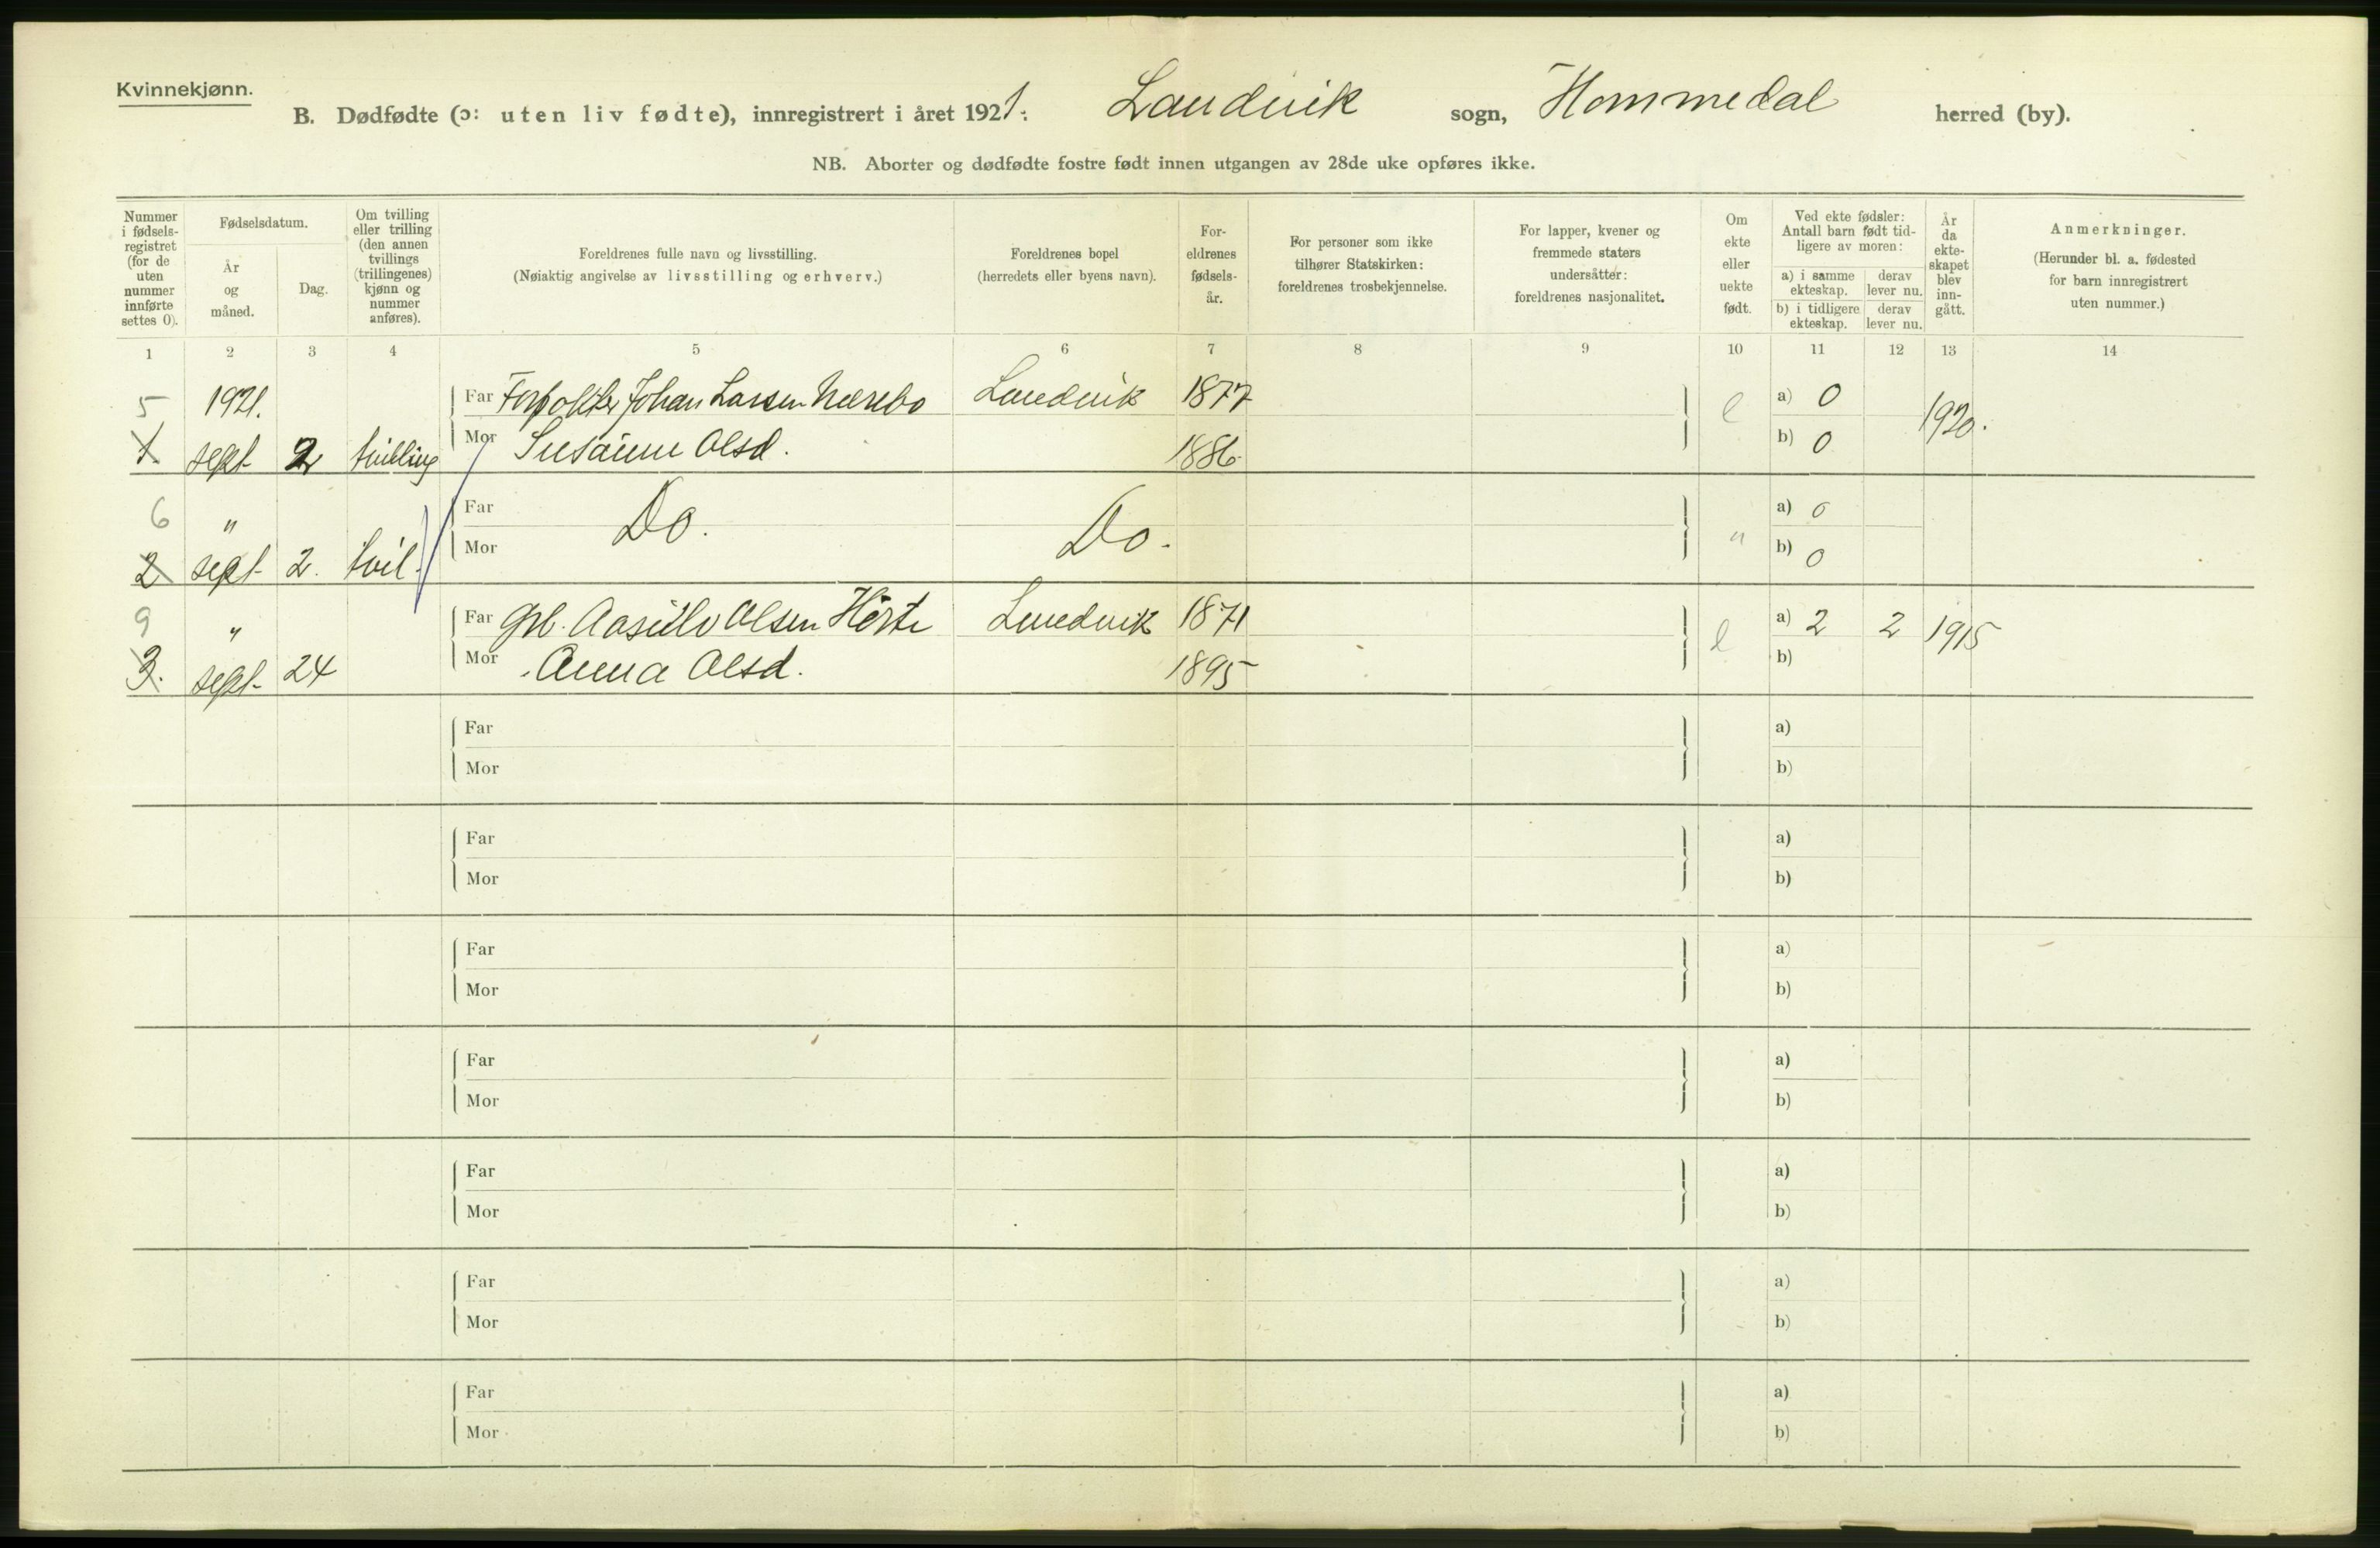 Kvinnekjønn.
B. Dødfødte (ɔ: uten liv fødte), innregistrert i året 1921. Landvik sogn, Hommedal herred (by).
NB. Aborter og dødfødte fostre født innen utgangen av 28de uke opføres ikke.
Nummer i fødsels-registret (for de uten nummer innførte settes 0).
Fødselsdatum.
År og måned.
Dag.
Om tvilling eller trilling (den annen tvillings (trillingenes) kjønn og nummer anføres).
Foreldrenes fulle navn og livsstilling.
(Nøiaktig angivelse av livsstilling og erhverv.)
Foreldrenes bopel
(herredets eller byens navn).
For-eldrenes fødsels-år.
For personer som ikke tilhører Statskirken: foreldrenes trosbekjennelse.
For lapper, kvener og fremmede staters undersåtter: foreldrenes nasjonalitet.
Om ekte eller uekte født.
Ved ekte fødsler: Antall barn født tid-ligere av moren:
a) i samme ekteskap. derav lever nu.
b) i tidligere ekteskap. derav lever nu.
År da ekte-skapet blev inn-gått.
Anmerkninger.
(Herunder bl. a. fødested for barn innregistrert uten nummer.)
1 2 3 4 5 6 7 8 9 10 11 12 13 14
5 1921. Far Johan Larsen Landvik 1877 e a) 0 1920.
1 sept 2 tvilling Mor Susanne Olsd. 1886 b) 0
6 " Far Do. Do. " a) 0
2 sept 2. tvil. Mor b) 0
9 " Far Olsen Landvik 1871 e a) 2 2 1915
3. sept 24 Mor Anna Olsd. 1895 b)
Far a)
Mor b)
Far a)
Mor b)
Far a)
Mor b)
Far a)
Mor b)
Far a)
Mor b)
Far a)
Mor b)
Far a)
Mor b)